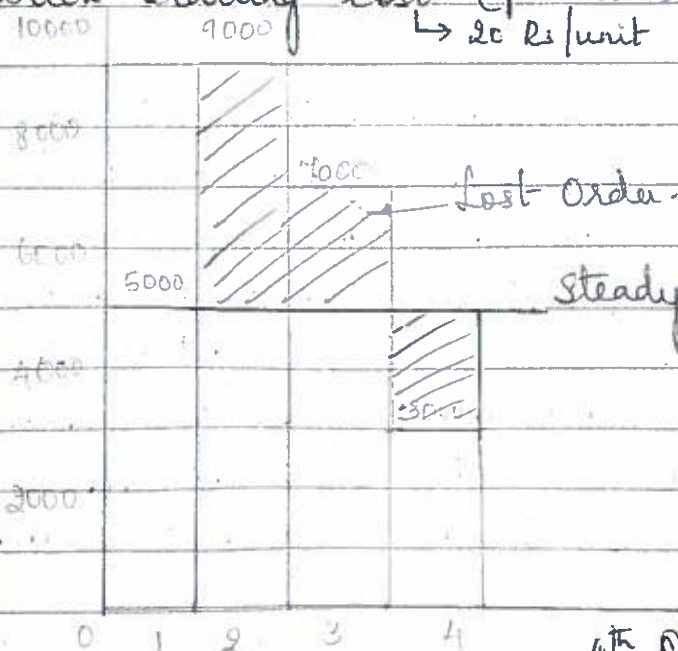 Cost
→ 20 Rs/unit
10000 9000
8000
7000
Lost Order.
6000
5000
Steady
4000
3000
2000
0 1 2 3 4 4th